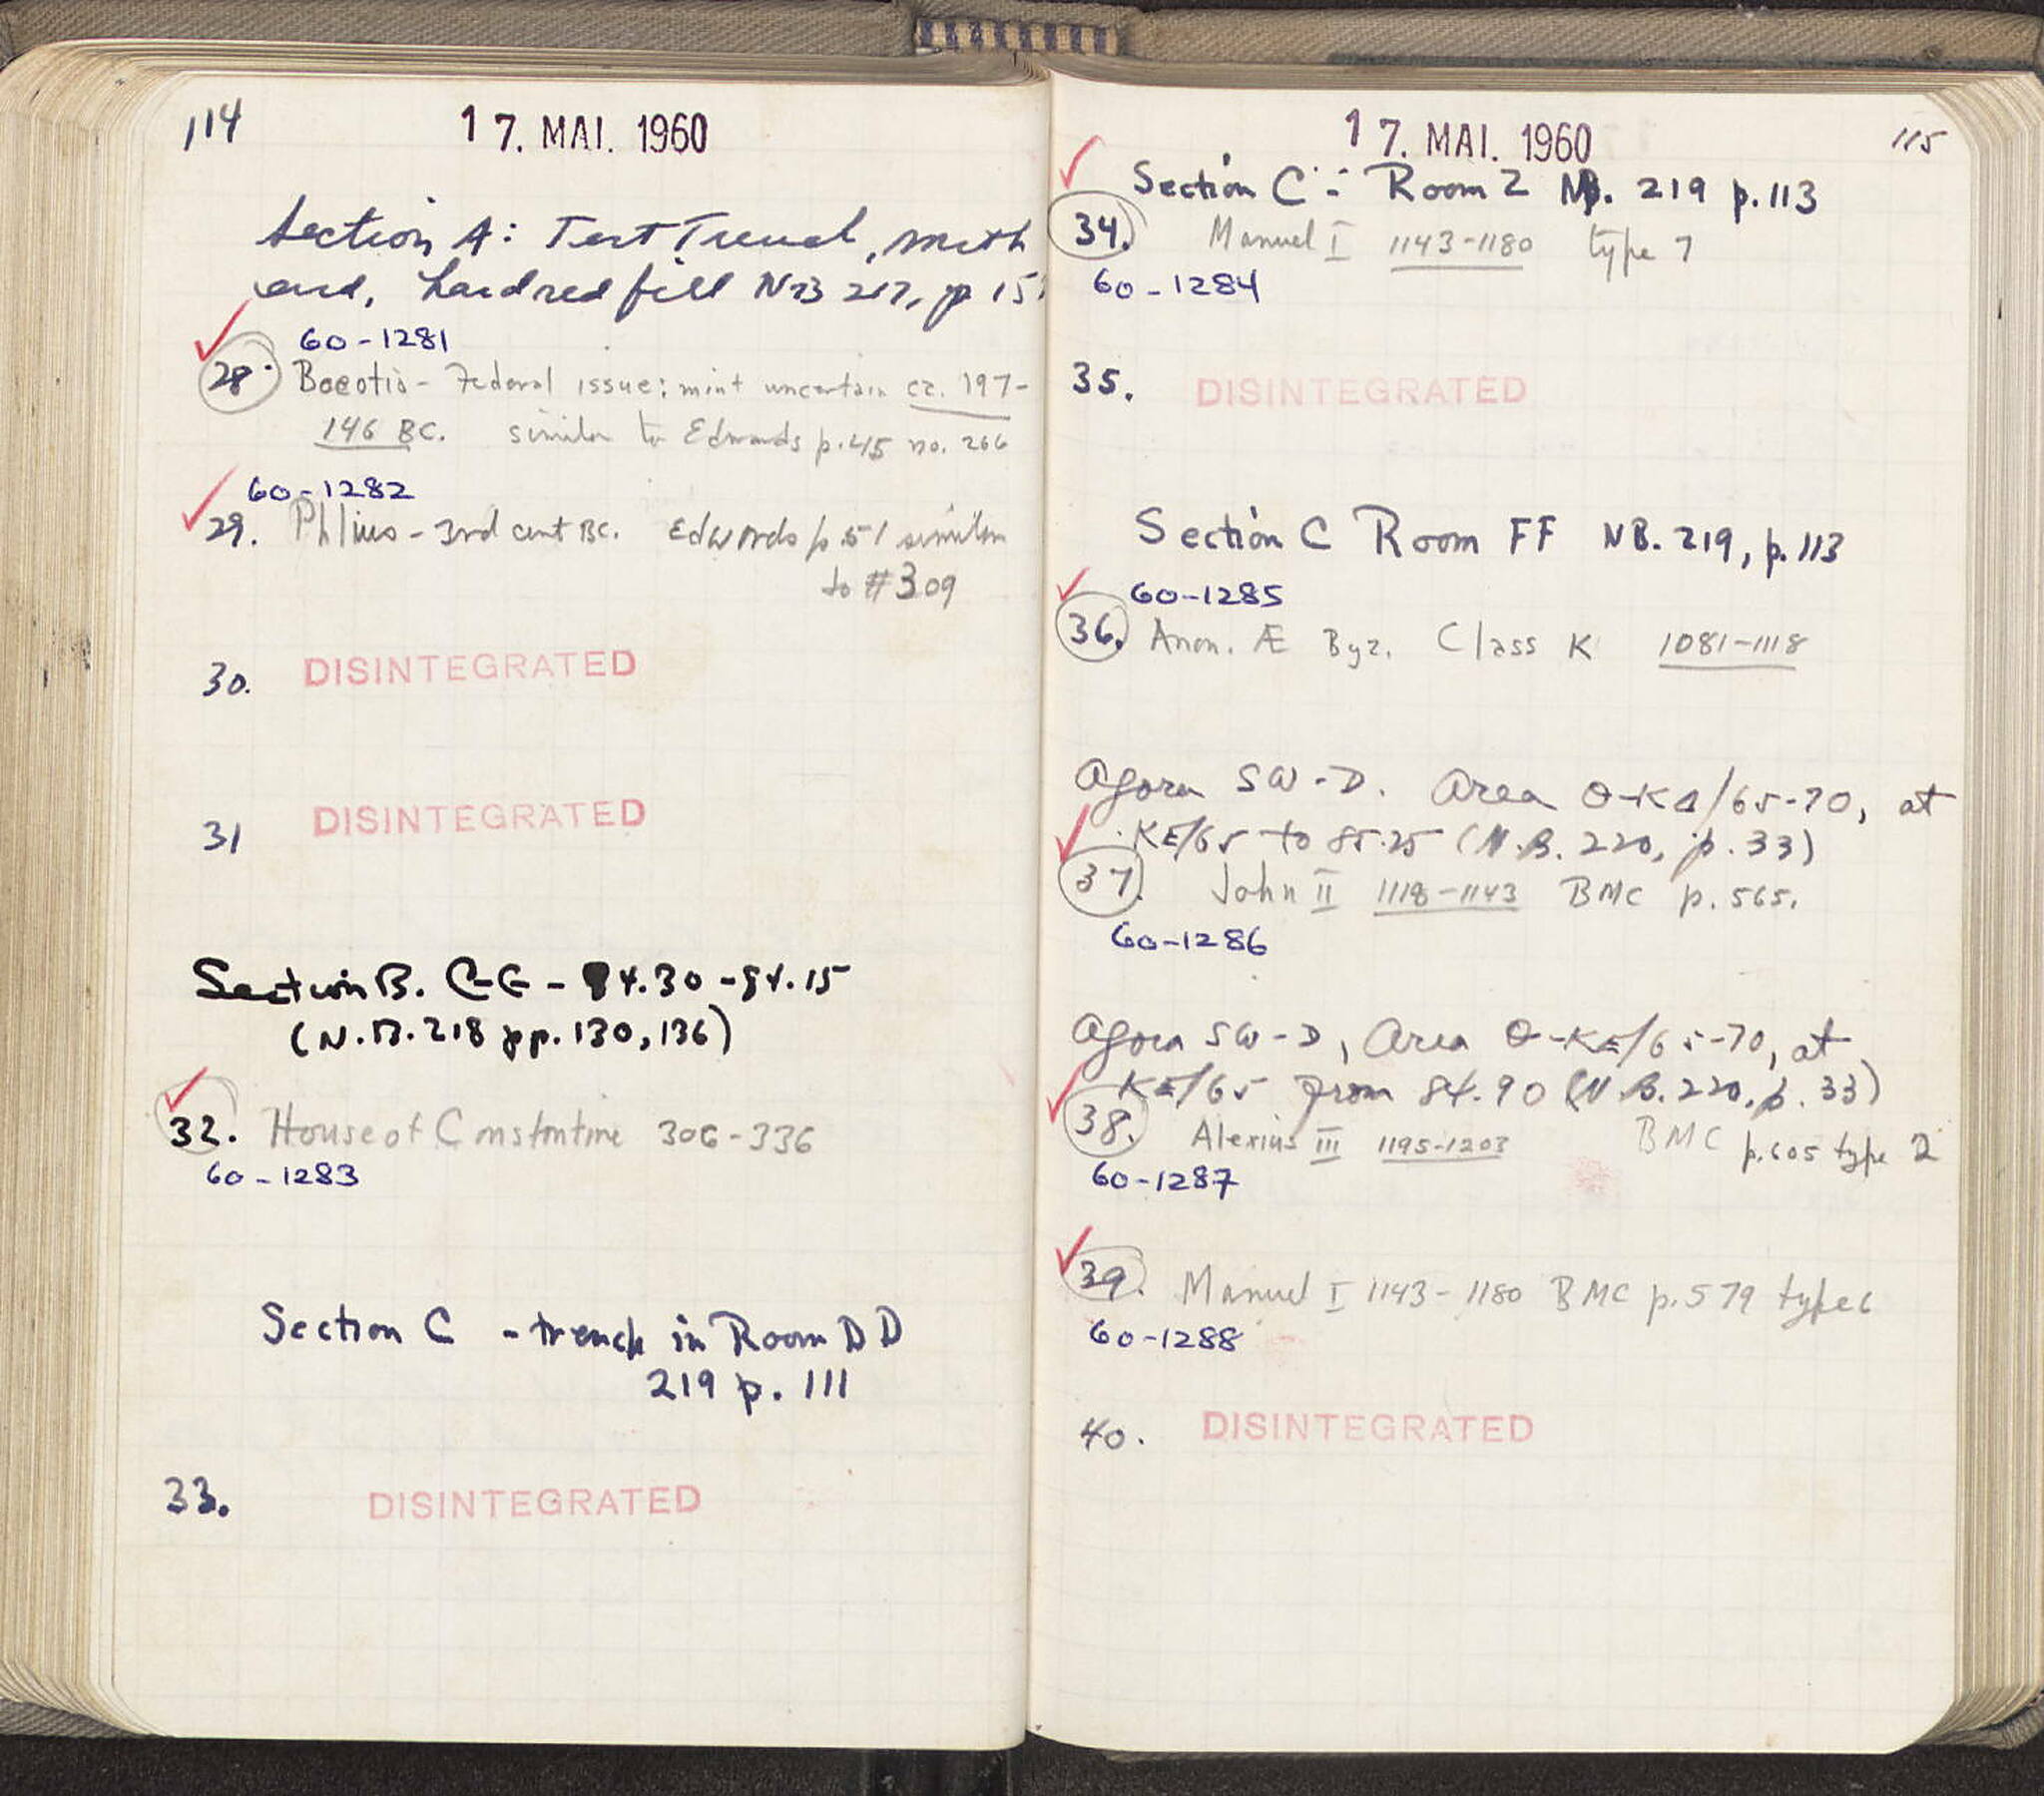 114
17. MAI. 1960
Section A: Test Trench, north
end, hard red fill NB 217, p 15
60-1281
28. Boeotia - Federal issue: mint uncertain ca. 197-
146 BC. similar to Edwards p.45 no. 266
60-1282
29. Phlius - 3rd cent BC. Edwards p.51 similar
to #309
30. DISINTEGRATED
31 DISINTEGRATED
Section B. C-G - 84.30 - 84.15
(N.B. 218 pp. 130, 136)
32. House of Constantine 306-336
60-1283
Section C - trench in Room DD
219 p. 111
33. DISINTEGRATED
17. MAI. 1960
115
Section C: Room 2 NB. 219 p. 113
34. Manuel I 1143-1180 type 7
60-1284
35. DISINTEGRATED
Section C Room FF NB. 219, p. 113
60-1285
36. Anon. Æ Byz. Class K 1081-1118
Agora SW-D. Area Θ-ΚΔ/65-70, at
ΚΕ/65 to 85.25 (N.B. 220, p. 33)
37. John II 1118-1143 BMC p. 565.
60-1286
Agora SW-D, Area Θ-ΚΕ/65-70, at
ΚΕ/65 from 84.90 (N.B. 220, p. 33)
38. Alexius III 1195-1203 BMC p.605 type 2
60-1287
39. Manuel I 1143-1180 BMC p.579 type 6
60-1288
40. DISINTEGRATED